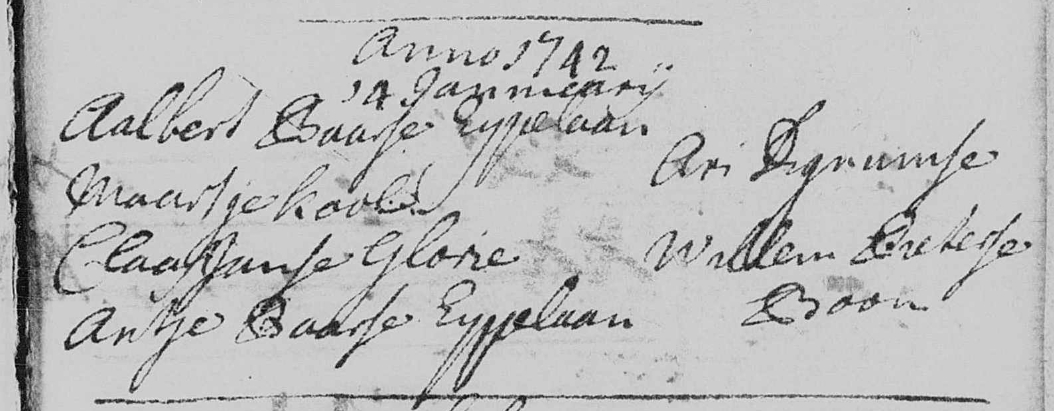 Anno 1742
14 Januwarij
Aalbert Baarse Eyppelaan
Ari Dignumse
Maartje kools
Claas Janse Glorie
Willem Pieterse
Antje Baarse Eyppelaan
Boon